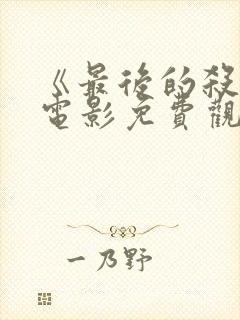 《最後的殺
電影免費觀
一乃野